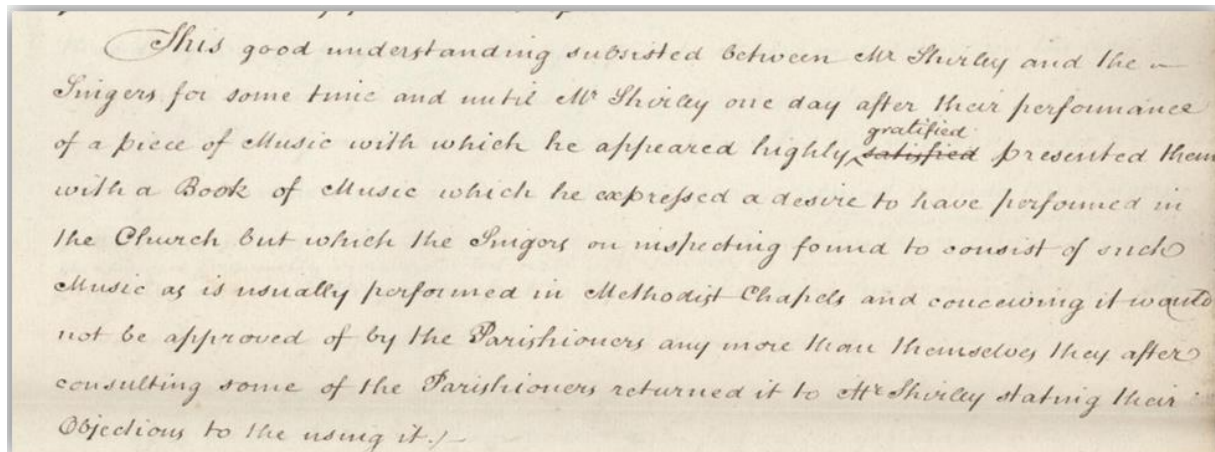 This good understanding subsisted between Mr Shirley and the
Singers for some time and until Mr Shirley one day after their performance
gratified
of a piece of Music with which he appeared highly satisfied presented them
with a Book of Music which he expressed a desire to have performed in
the Church but which the Singers on inspecting found to consist of such
Music as is usually performed in Methodist Chapels and conceiving it would
not be approved of by the Parishioners any more than themselves they after
consulting some of the Parishioners returned it to Mr Shirley stating their
Objections to the using it./-